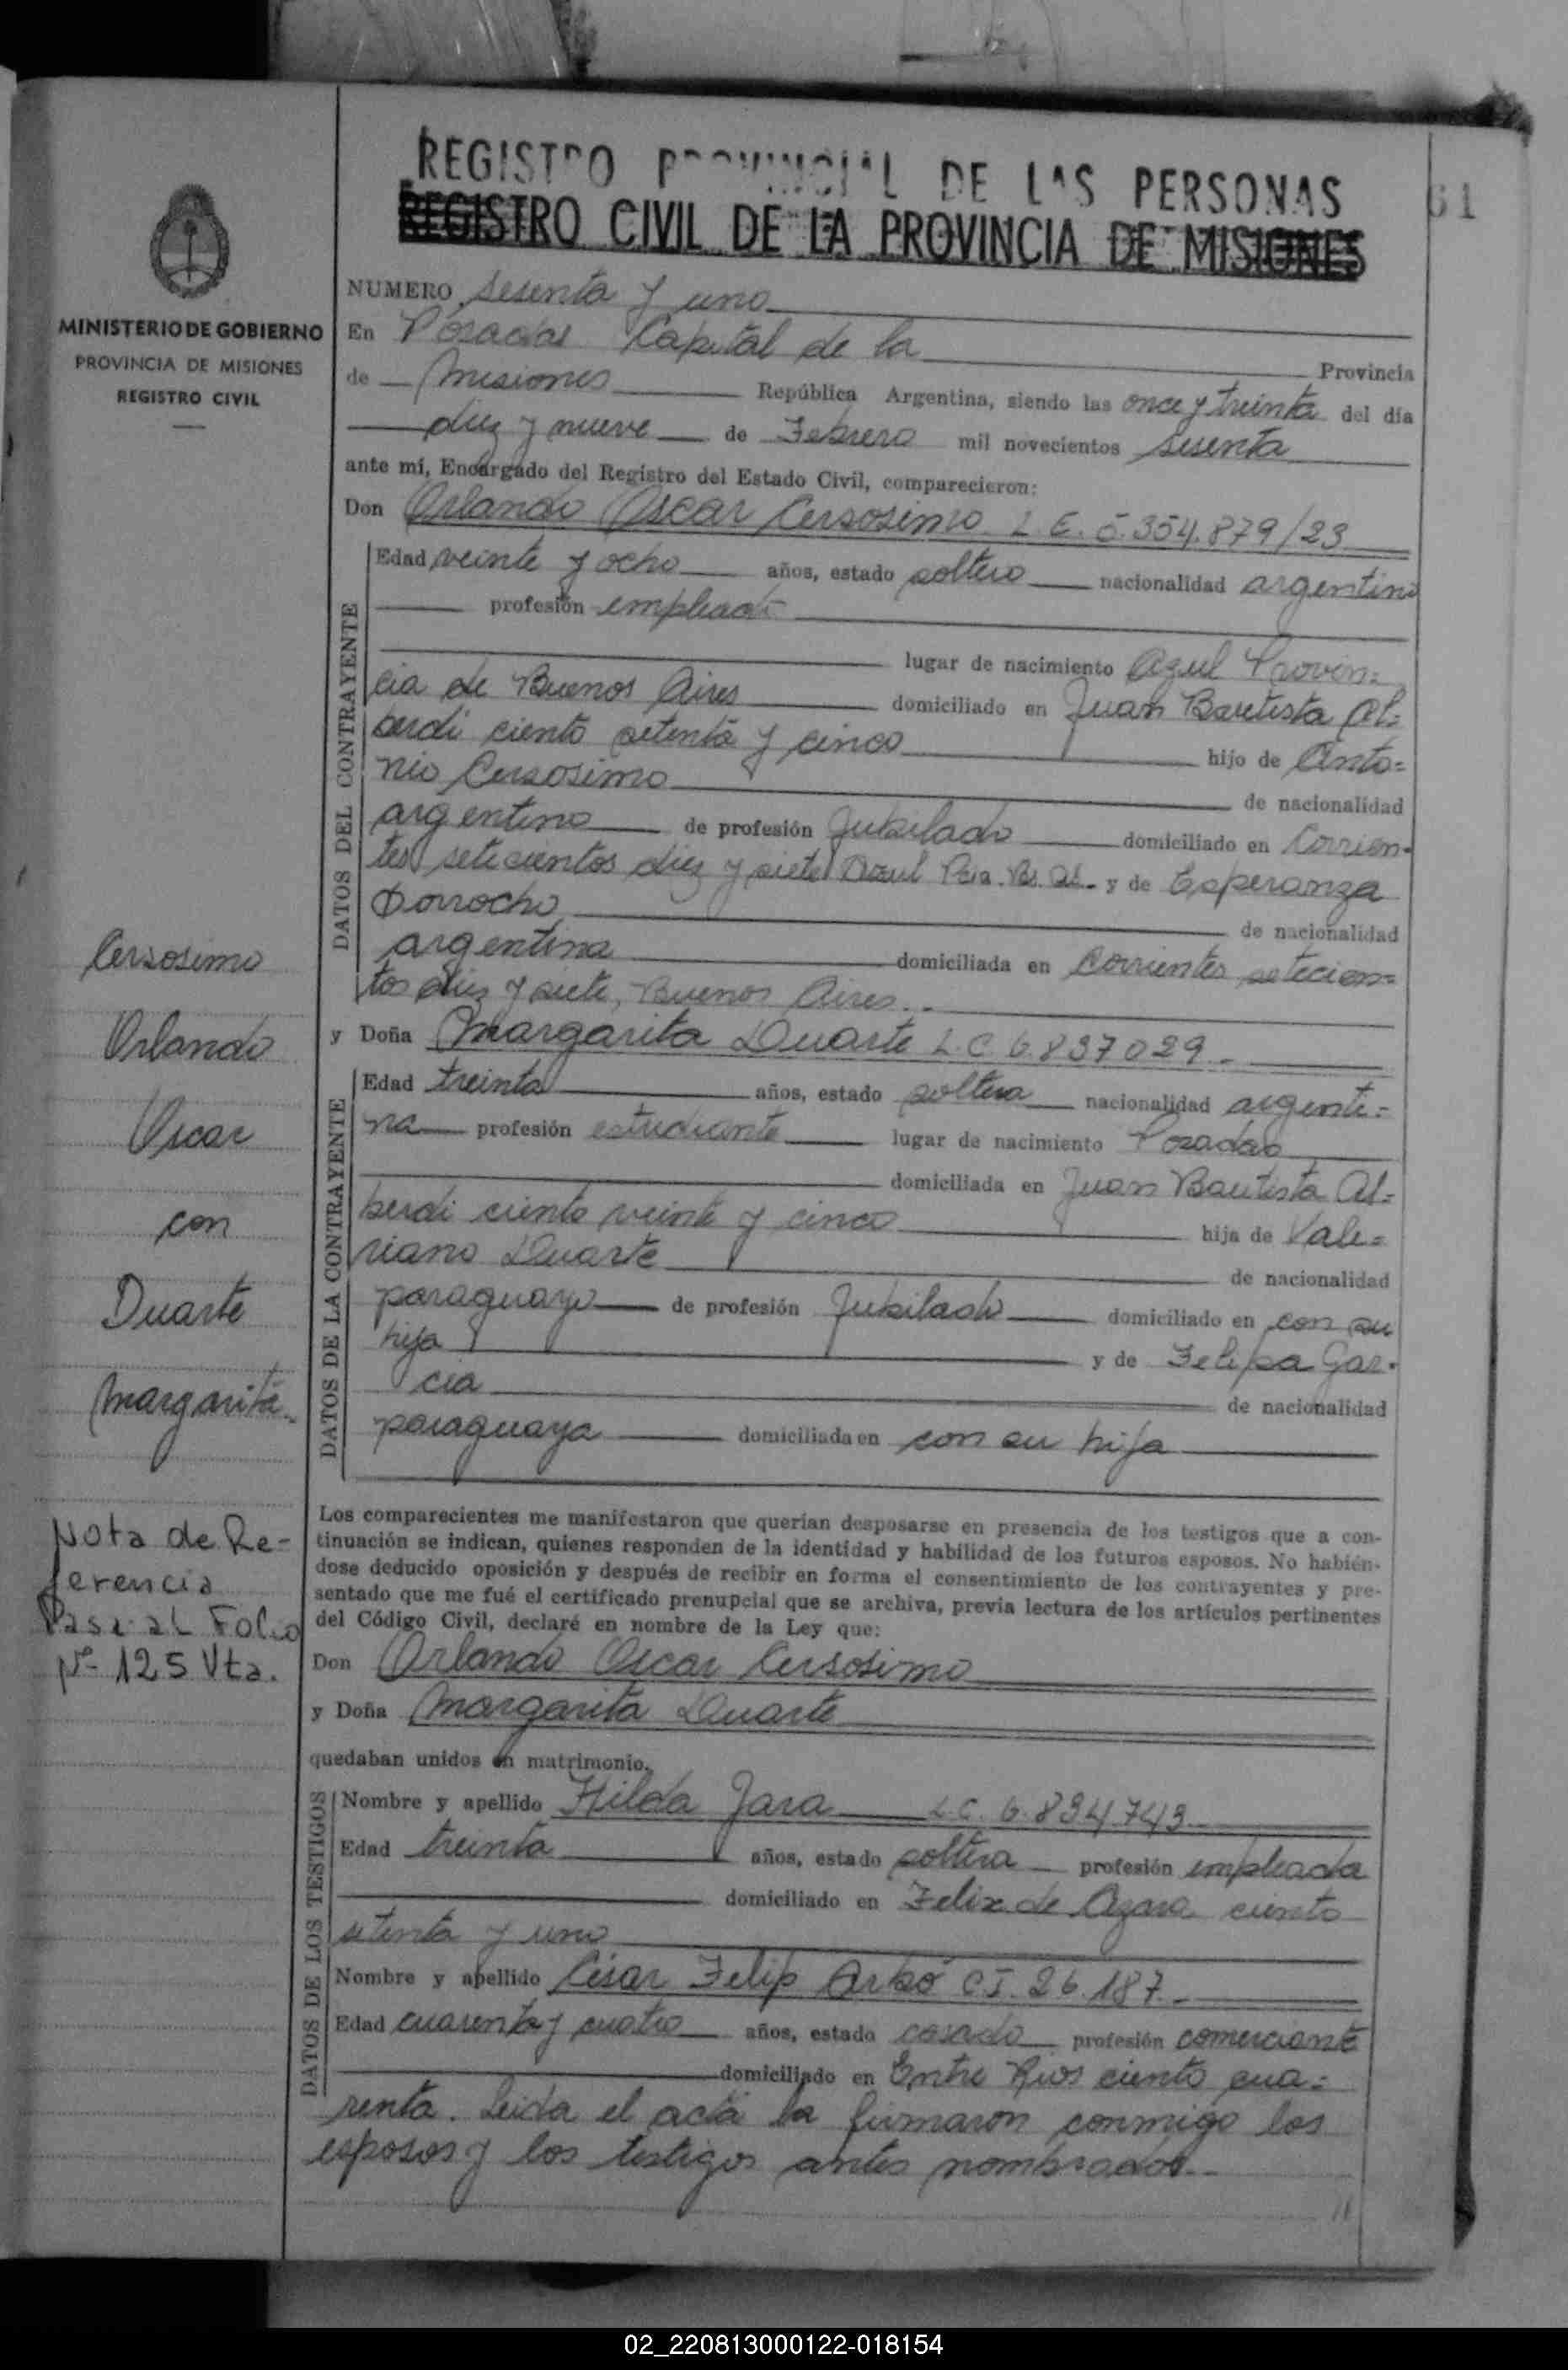 REGISTRO PROVINCIAL DE LAS PERSONAS
REGISTRO CIVIL DE LA PROVINCIA DE MISIONES
61
MINISTERIO DE GOBIERNO
PROVINCIA DE MISIONES
REGISTRO CIVIL
NUMERO sesenta y uno
En Posadas Capital de la Provincia
de Misiones República Argentina, siendo las once y treinta del día
diez y nueve de Febrero mil novecientos sesenta
ante mí, Encargado del Registro del Estado Civil, comparecieron:
Don Orlando Oscar Cersosimo L.E. 5.354.879/23
DATOS DEL CONTRAYENTE
Edad veinte y ocho años, estado soltero nacionalidad argentino
profesión empleado
lugar de nacimiento Azul Provin=
cia de Buenos Aires domiciliado en Juan Bautista Al=
berdi ciento setenta y cinco hijo de Anto=
nio Cersosimo de nacionalidad
argentino de profesión Jubilado domiciliado en Corrien-
tes setecientos diez y siete Azul Pcia. Bs. As. y de Esperanza
Dorrocho de nacionalidad
argentina domiciliada en Corrientes setecien=
tos diez y siete, Buenos Aires.-
y Doña Margarita Duarte L.C. 6.837029.-
DATOS DE LA CONTRAYENTE
Edad treinta años, estado soltera nacionalidad argenti=
na profesión estudiante lugar de nacimiento Posadas
domiciliada en Juan Bautista Al=
berdi ciento veinte y cinco hija de Vale=
riano Duarte de nacionalidad
paraguayo de profesión Jubilado domiciliado en con su
hija y de Felipa Gar-
cia de nacionalidad
paraguaya domiciliada en con su hija
Los comparecientes me manifestaron que querían desposarse en presencia de los testigos que a con-
tinuación se indican, quienes responden de la identidad y habilidad de los futuros esposos. No habién-
dose deducido oposición y después de recibir en forma el consentimiento de los contrayentes y pre-
sentado que me fué el certificado prenupcial que se archiva, previa lectura de los artículos pertinentes
del Código Civil, declaré en nombre de la Ley que:
Don Orlando Oscar Cersosimo
y Doña Margarita Duarte
quedaban unidos en matrimonio.
DATOS DE LOS TESTIGOS
Nombre y apellido Hilda Jara L.C. 6.834743
Edad treinta años, estado soltera profesión empleada
domiciliado en Felix de Azara ciento
setenta y uno
Nombre y apellido César Felip Arbó C.I. 26.187.-
Edad cuarenta y cuatro años, estado casado profesión comerciante
domiciliado en Entre Rios ciento cua=
renta. Leida el acta la firmaron conmigo los
esposos y los testigos antes nombrados.-
Cersosimo
Orlando
Oscar
con
Duarte
Margarita.-
Nota de Re-
ferencia
Pase al Folio
Nº 125 Vta.
02_220813000122-018154